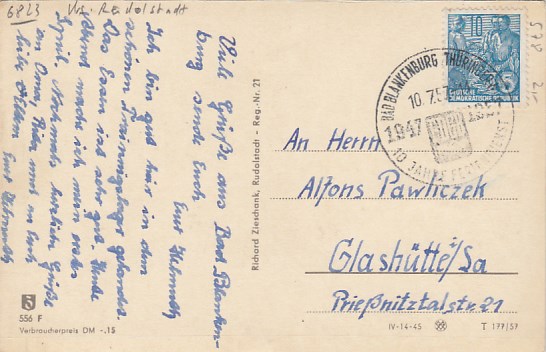 6823
Krs. Rudolstadt
Viele Grüße aus Bad Blanken-
burg sendet Euch
Euer Helmuth
Ich bin gut hier in dem
schönen Trainingslager gelandet.
Das Essen ist sehr gut. Heute
Abend macht sich mein erstes
Spiel. Nochmals herzliche Grüße
an Oma, und an Euch
liebe Eltern Euer Helmuth
556 F
Verbraucherpreis DM -.15
Richard Zieschank, Rudolstadt - Reg.-Nr. 21
10
DEUTSCHE
DEMOKRATISCHE REPUBLIK
BAD BLANKENBURG THÜRINGERW
10.7.57
1947 1957
10 JAHRE
An Herrn
Alfons Pawliczek
Glashütte i/Sa
Prießnitztalstr. 21
IV-14-45
T 177/57